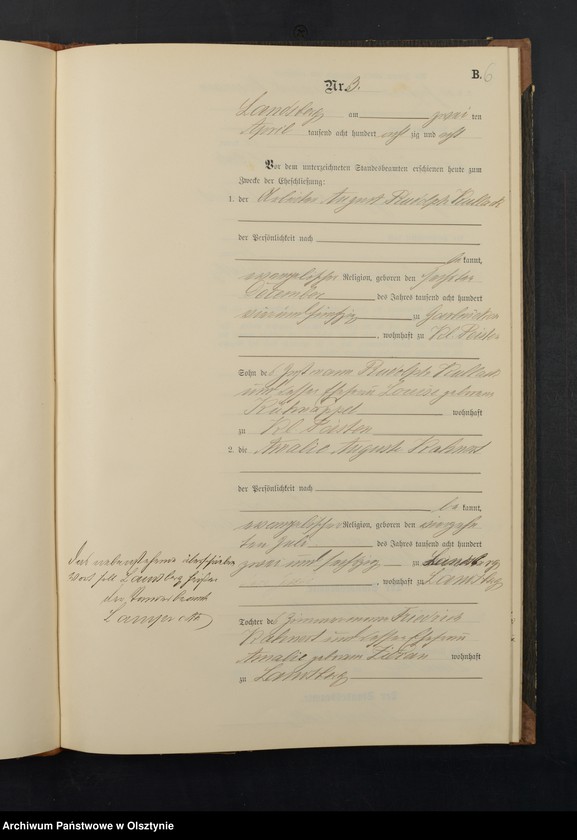 B. 6
Nr. 3.
Landsberg am zwei ten
April tausend acht hundert acht zig und acht
Vor dem unterzeichneten Standesbeamten erschienen heute zum
Zwecke der Eheschließung:
1. der Arbeiter August Rudolph
der Persönlichkeit nach
be kannt,
evangelischer Religion, geboren den sechsten
December des Jahres tausend acht hundert
vierundfünfzig zu
, wohnhaft zu Kl Peisten
Sohn des Rudolph
und dessen Ehefrau Louise geborene
wohnhaft
zu Kl. Peisten
2. die Amalie Auguste
der Persönlichkeit nach
be kannt,
evangelischer Religion, geboren den vierzehn
ten Juli des Jahres tausend acht hundert
zwei und sechszig zu
, wohnhaft zu Landsberg
Tochter des Zimmermann Friedrich
und dessen Ehefrau
Amalie geborene wohnhaft
zu Landsberg
Das nebenstehende überschriebene
Wort soll Landsberg heißen
der Standesbeamte
Archiwum Państwowe w Olsztynie